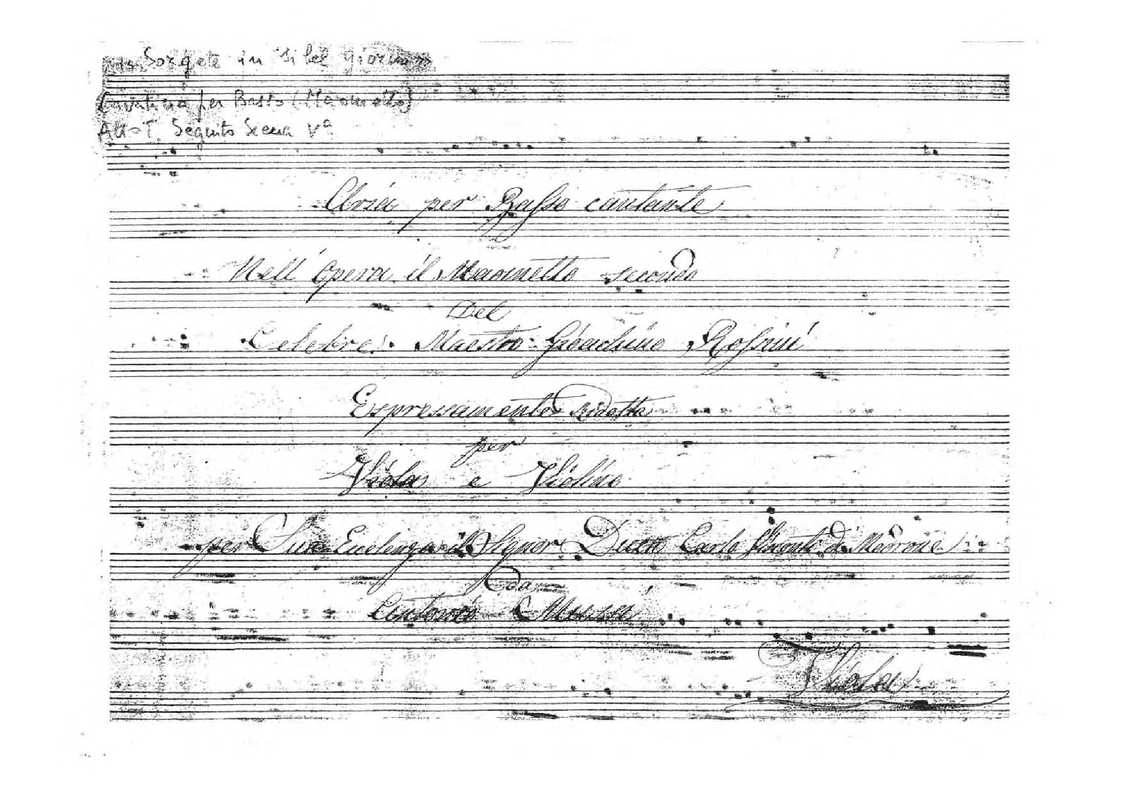 Sorgete in sì bel giorno
Cavatina per Basso (Maometto)
Atto I. Seguito Scena Vª
Aria per Basso cantante
Nell' Opera il Maometto secondo
Del
Celebre: Maestro: Gioachino Rossini
Espressamente Ridotta
per
Viola e Violino
per Sua Eccelenza il Signor Duca Carlo di
da
Antonio
Viola